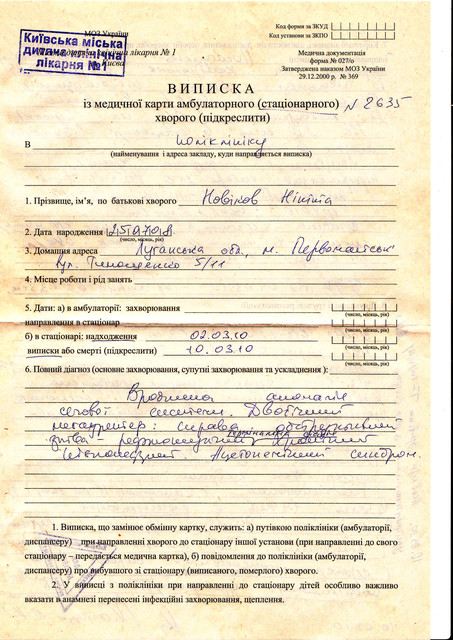 МОЗ України
Київська міська
дитяча клінічна
лікарня №1
лікарня № 1
м. Києва
Код форми за ЗКУД
Код установи за ЗКПО
Медична документація
форма № 027/о
Затверджена наказом МОЗ України
29.12.2000 р. № 369
ВИПИСКА
із медичної карти амбулаторного (стаціонарного) N 2635
хворого (підкреслити)
В поліклініку
(найменування і адреса закладу, куди направляється виписка)
1. Прізвище, ім’я, по батькові хворого Новіков Нікіта
2. Дата народження
(число, місяць, рік)
3. Домашня адреса Луганська обл., м. Первомайськ
вул. 5/11
4. Місце роботи і рід занять
5. Дати: а) в амбулаторії: захворювання
направлення в стаціонар
(число, місяць, рік)
б) в стаціонарі: надходження 02.03.10
(число, місяць, рік)
виписки або смерті (підкреслити) 10.03.10
(число, місяць, рік)
6. Повний діагноз (основне захворювання, супутні захворювання та ускладнення ):
Вроджена аномалія
сечової системи. Двобічний
мегауретер: справа обструктивний
зліва –
Ацетонемічний синдром.
1. Виписка, що замінює обмінну картку, служить: а) путівкою поліклініки (амбулаторії,
диспансеру) при направленні хворого до стаціонару іншої установи (при направленні до свого
стаціонару – передається медична картка), б) повідомлення до поліклініки (амбулаторії,
диспансеру) про вибувшого зі стаціонару (виписаного, померлого) хворого.
2. У виписці з поліклініки при направленні до стаціонару дітей особливо важливо
вказати в анамнезі перенесені інфекційні захворювання, щеплення.